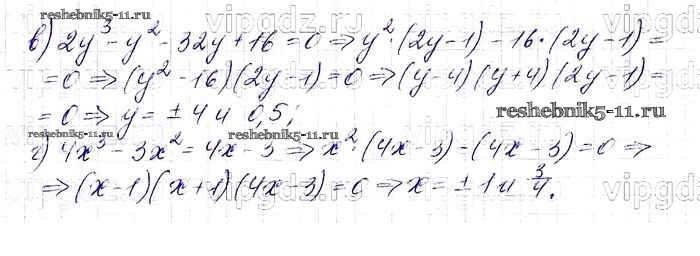 reshebnik5-11.ru vipgdz.ru
в) 2y³ - y² - 32y + 16 = 0 ⇒ y² · (2y - 1) - 16 · (2y - 1) =
= 0 ⇒ (y² - 16)(2y - 1) = 0 ⇒ (y - 4)(y + 4)(2y - 1) =
= 0 ⇒ y = ± 4 и 0,5;
reshebnik5-11.ru
reshebnik5-11.ru reshebnik5-11.ru
г) 4x³ - 3x² = 4x - 3 ⇒ x² · (4x - 3) - (4x - 3) = 0 ⇒
⇒ (x - 1)(x + 1)(4x - 3) = 0 ⇒ x = ± 1 и 3/4.
vipgdz.ru